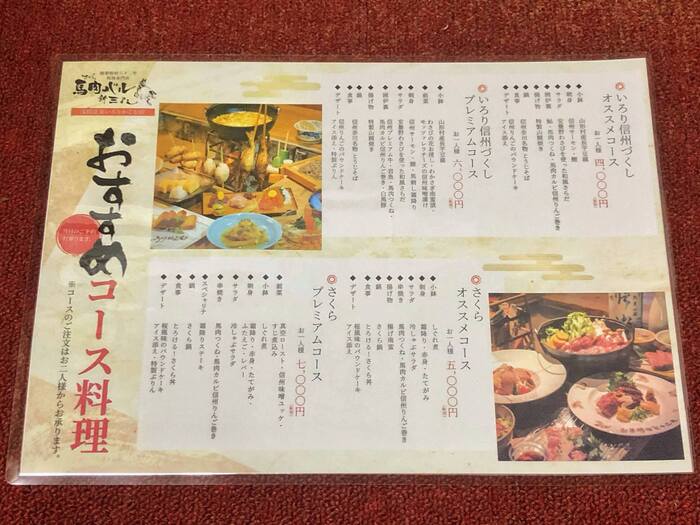 馬肉バル
新三よし
おすすめ
コース料理
当日のご予約
承ります。
※コースのご注文はお二人様からお承ります。
◎いろり信州づくし
オススメコース
お一人様 四,〇〇〇円
◆小鉢 山形村産長芋豆腐
◆刺身 信州サーモン・鯉
◆サラダ 安曇野わさびを使った和風さらだ
◆囲炉裏
◆揚げ物 特製山賊焼
◆鍋
◆食事 信州奈川名物とうじそば
◆デザート 信州りんごのパウンドケーキ
アイス添え・特製ぷりん
◎いろり信州づくし
プレミアムコース
お一人様 六,〇〇〇円
◆小鉢 山形村産長芋豆腐
◆前菜
◆刺身 信州サーモン・鯉・馬刺し霜降り
◆サラダ 安曇野わさびを使った和風さらだ
◆囲炉裏
◆揚げ物 特製山賊焼
◆鍋
◆食事 信州奈川名物とうじそば
◆デザート 信州りんごのパウンドケーキ
アイス添え・特製ぷりん
◎さくら
オススメコース
お一人様 五,〇〇〇円
◆小鉢 しぐれ煮
◆刺身 霜降り・赤身・たてがみ
◆サラダ 冷しゃぶサラダ
◆串焼き 馬肉つくね・馬肉カルビ信州りんご巻き
◆揚げ物 揚げ南蛮
◆鍋 さくら鍋
◆食事 とろける!さくら丼
◆デザート 桜風味のパウンドケーキ
アイス添え・特製ぷりん
◎さくら
プレミアムコース
お一人様 七,〇〇〇円
◆前菜 真空ロースト・信州味噌ユッケ・
すじ煮込み
◆小鉢 しぐれ煮
◆刺身 霜降り・赤身・たてがみ・
ふたえご・レバー
◆サラダ 冷しゃぶサラダ
◆串焼き 馬肉つくね・馬肉カルビ信州りんご巻き
◆スペシャリテ 霜降りステーキ
◆鍋 さくら鍋
◆食事 とろける!さくら丼
◆デザート 桜風味のパウンドケーキ
アイス添え・特製ぷりん